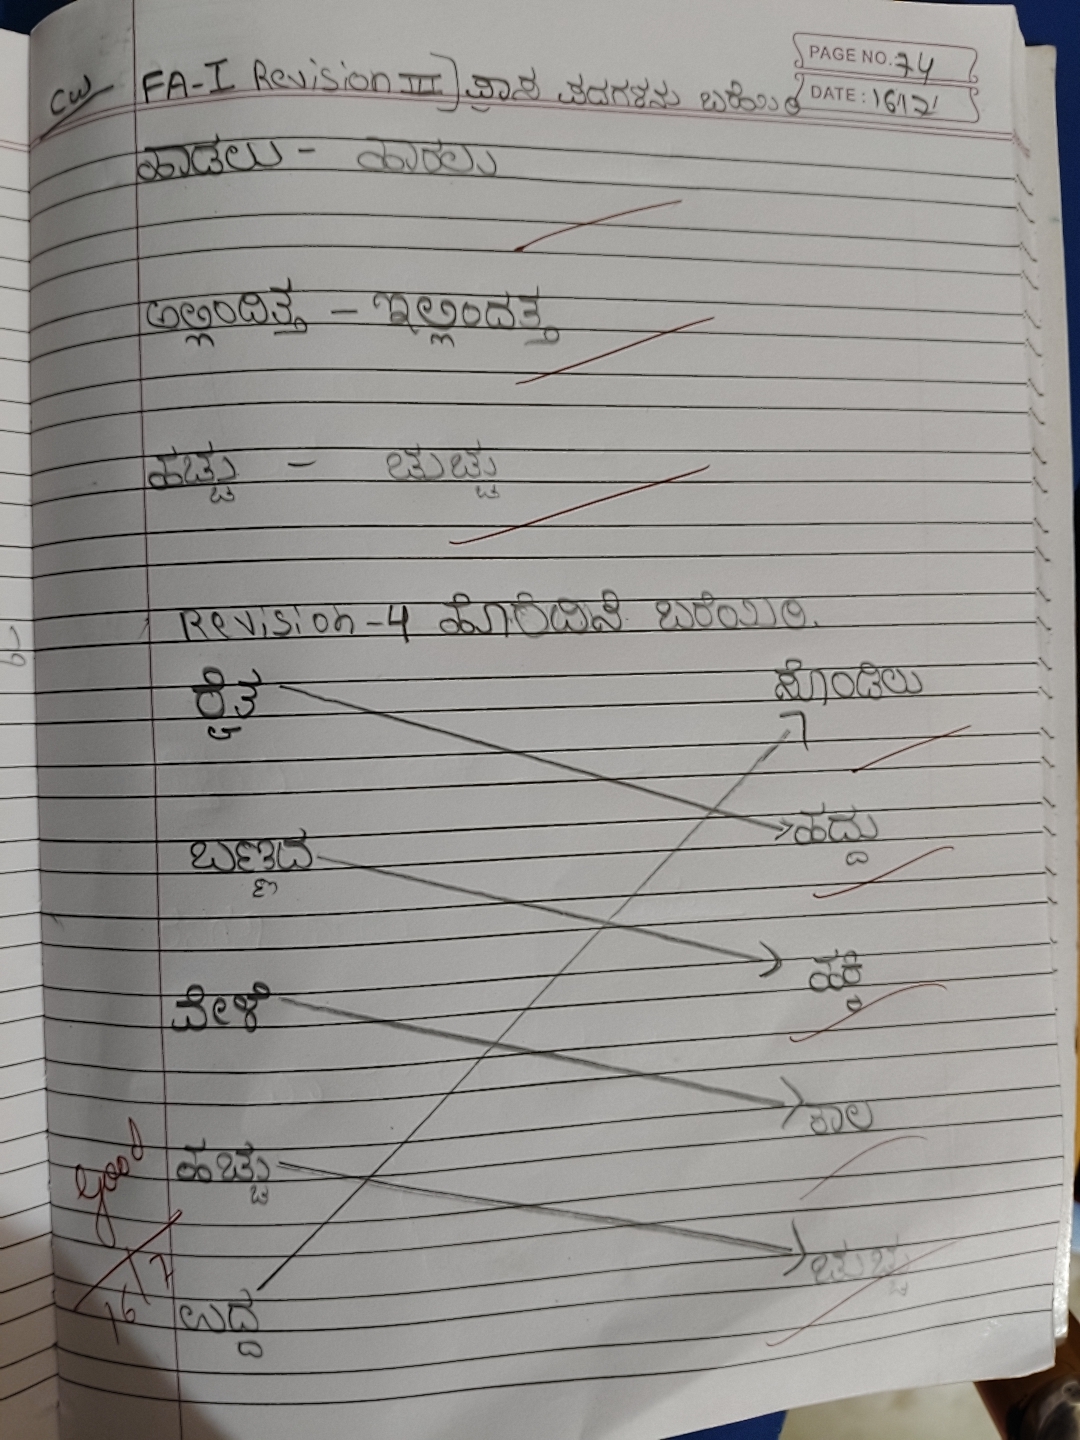 PAGE NO. 74
DATE: 16/7/
CW FA-I Revision III) ಪ್ರಾಸ ಪದಗಳನು ಬರೆಯಿರಿ
ಹಾಡಲು - ಹಾರಲು
ಅಲ್ಲಿಂದಿತ್ತ - ಇಲ್ಲಿಂದತ್ತ
ಹಚ್ಚು - ಚುಚ್ಚು
Revision-4 ಹೊಂದಿಸಿ ಬರೆಯಿರಿ.
ರೈತ ಸೊಂಡಿಲು
ಬಣ್ಣದ ಹದ್ದು
ವೇಳೆ ಹಕ್ಕಿ
ಹಚ್ಚು ಕಾಲ
ಉದ್ದ ಚುಚ್ಚು
good
16/7